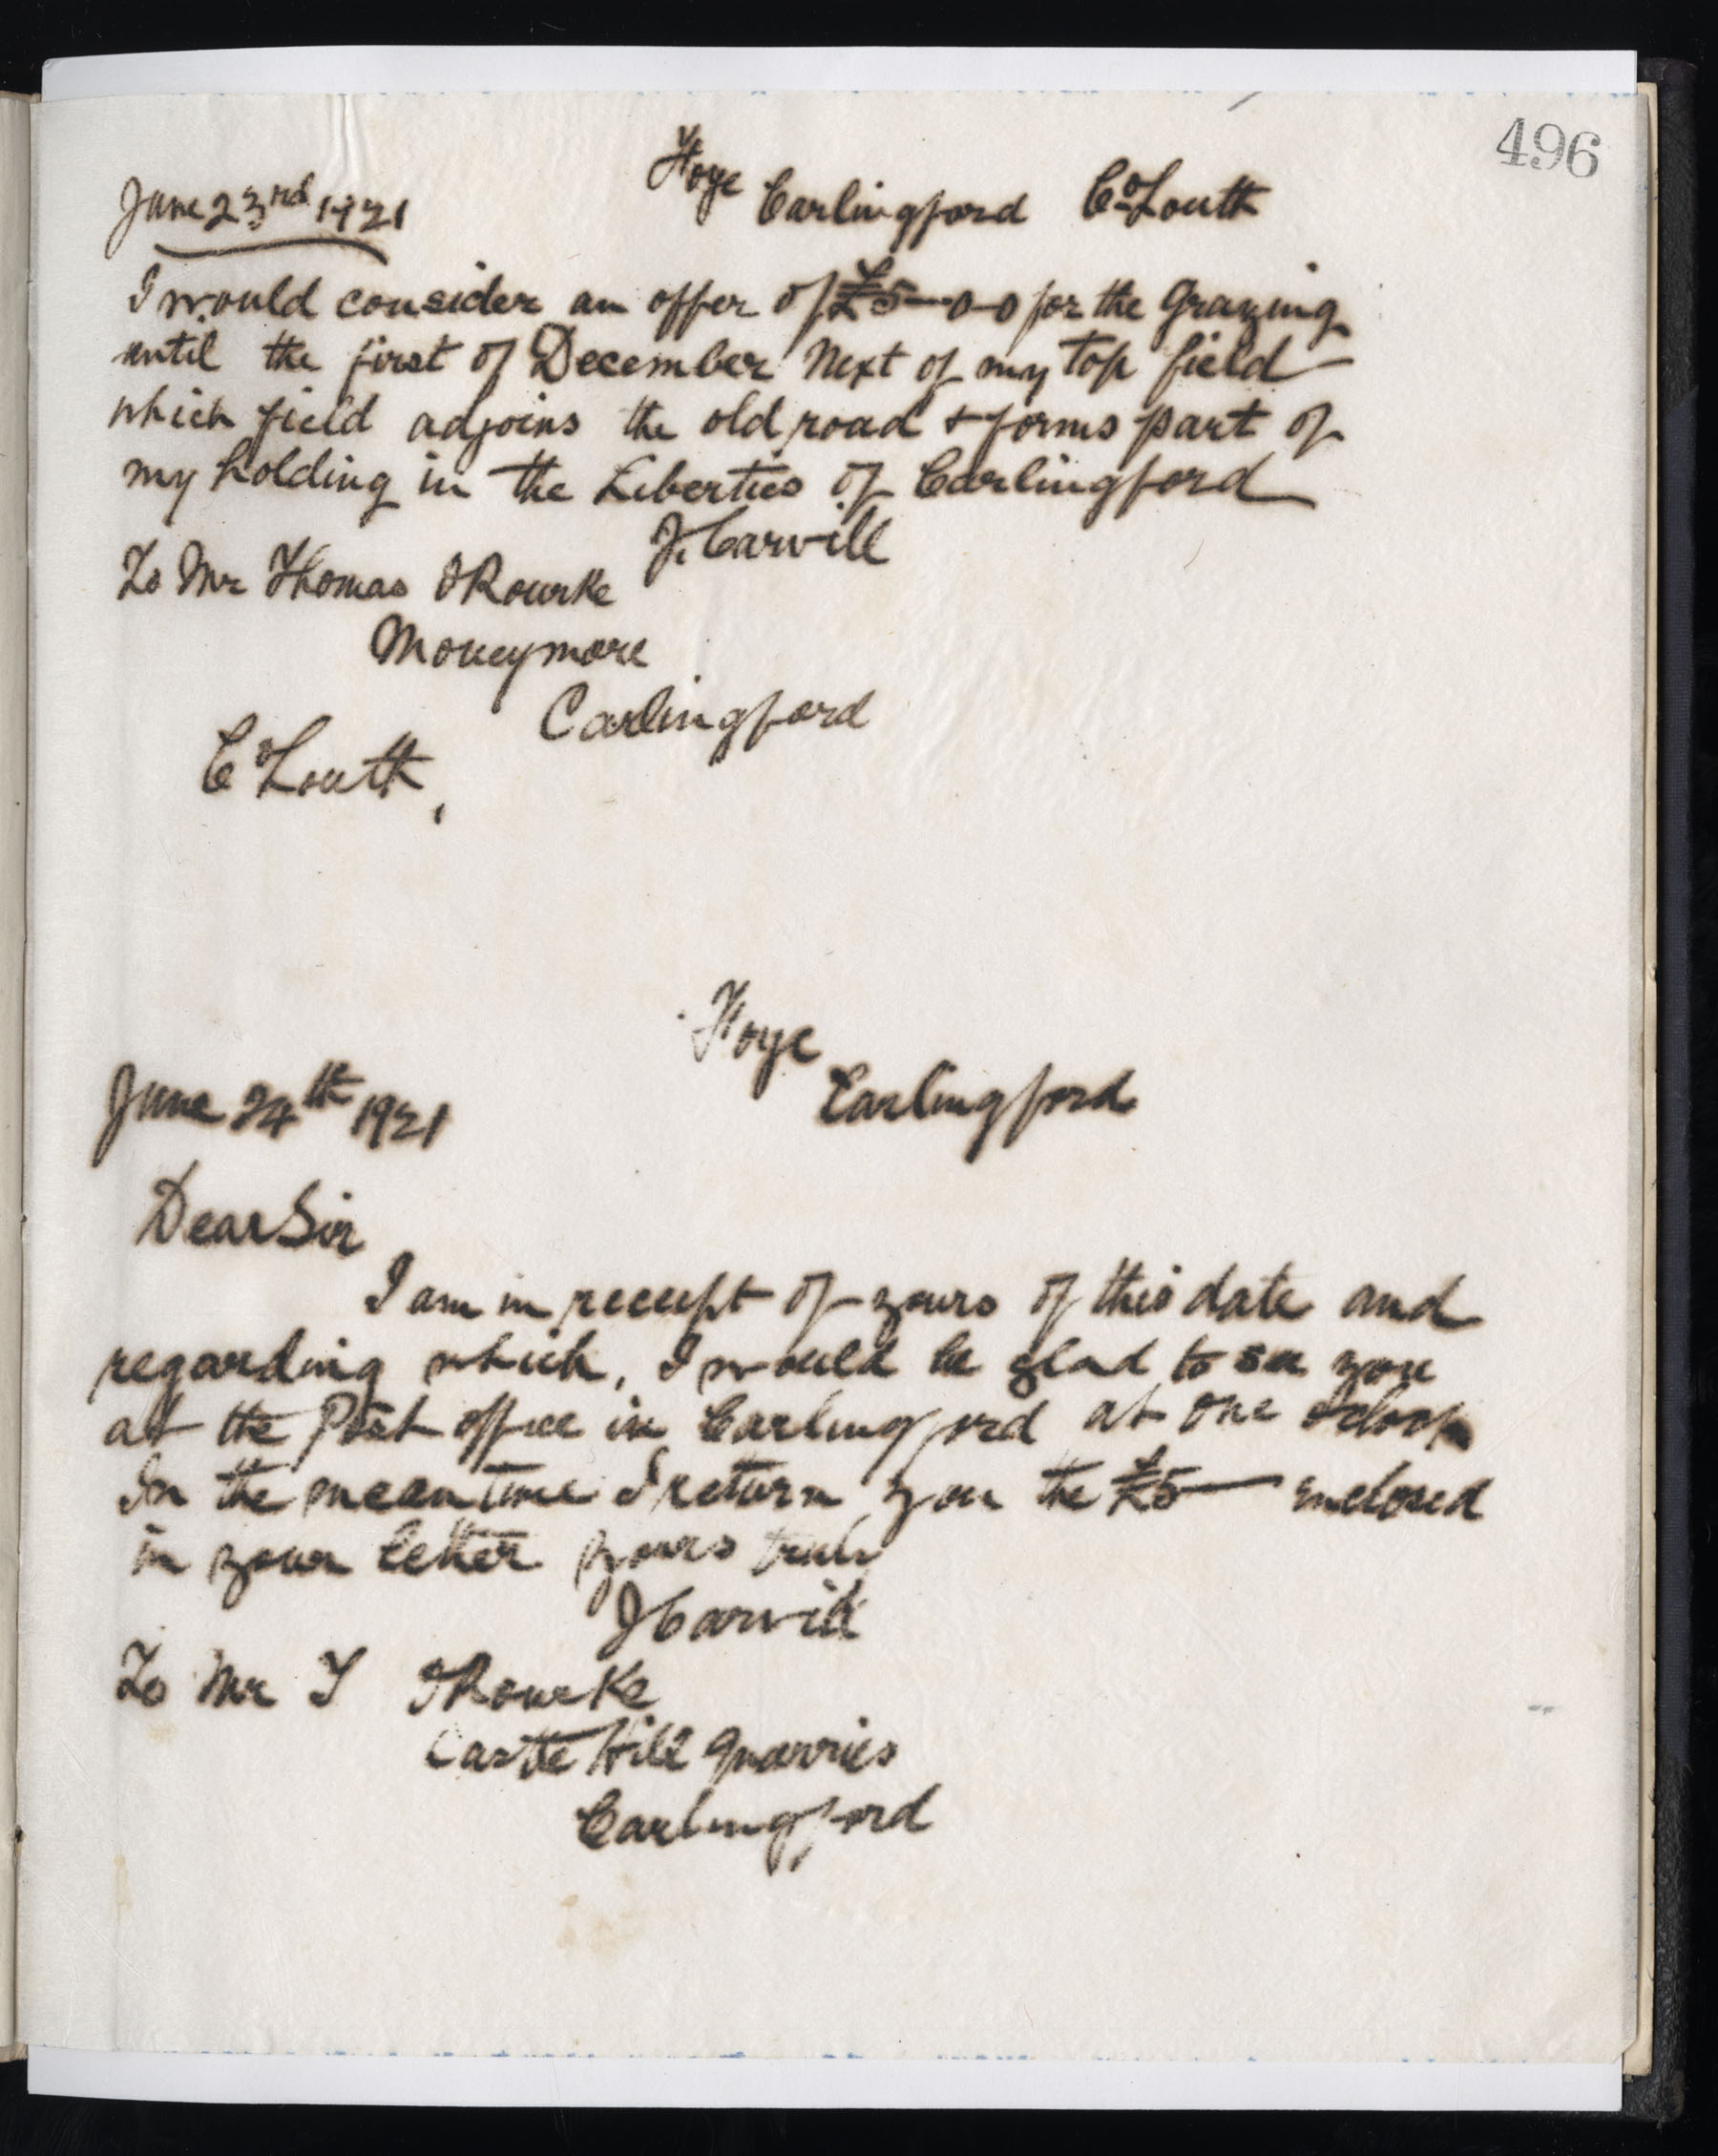 496
Foye Carlingford Co Louth
June 23rd 1921
I would consider an offer of £5-0-0 for the Grazing
until the first of December Next of my top field
which field adjoins the old road & forms part of
my holding in the Liberties of Carlingford
J. Carvill
To Mr Thomas O'Rourke
Moneymore
Carlingford
Co Louth,
Foye
Carlingford
June 24th 1921
Dear Sir
I am in receipt of yours of this date and
regarding which, I would be glad to see you
at the Post office in Carlingford at one oclock
In the meantime I return you the £5— enclosed
in your letter yours truly
J Carvill
To Mr T O'Rourke
Castle Hill Quarries
Carlingford